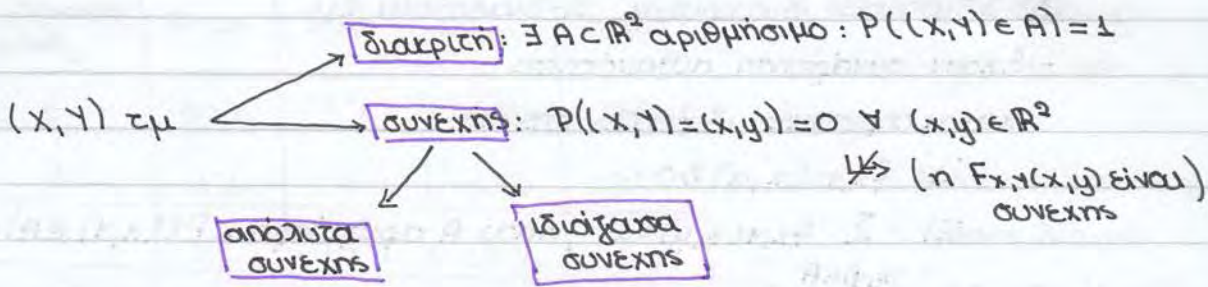 διακριτή: ∃ A⊂ℝ² αριθμήσιμο: P((X,Y)∈A)=1
(X,Y) τμ
συνεχής: P((X,Y)=(x,y))=0 ∀ (x,y)∈ℝ²
⇏ (η F_{X,Y}(x,y) είναι συνεχης)
απόλυτα συνεχης
ιδιάζουσα συνεχης